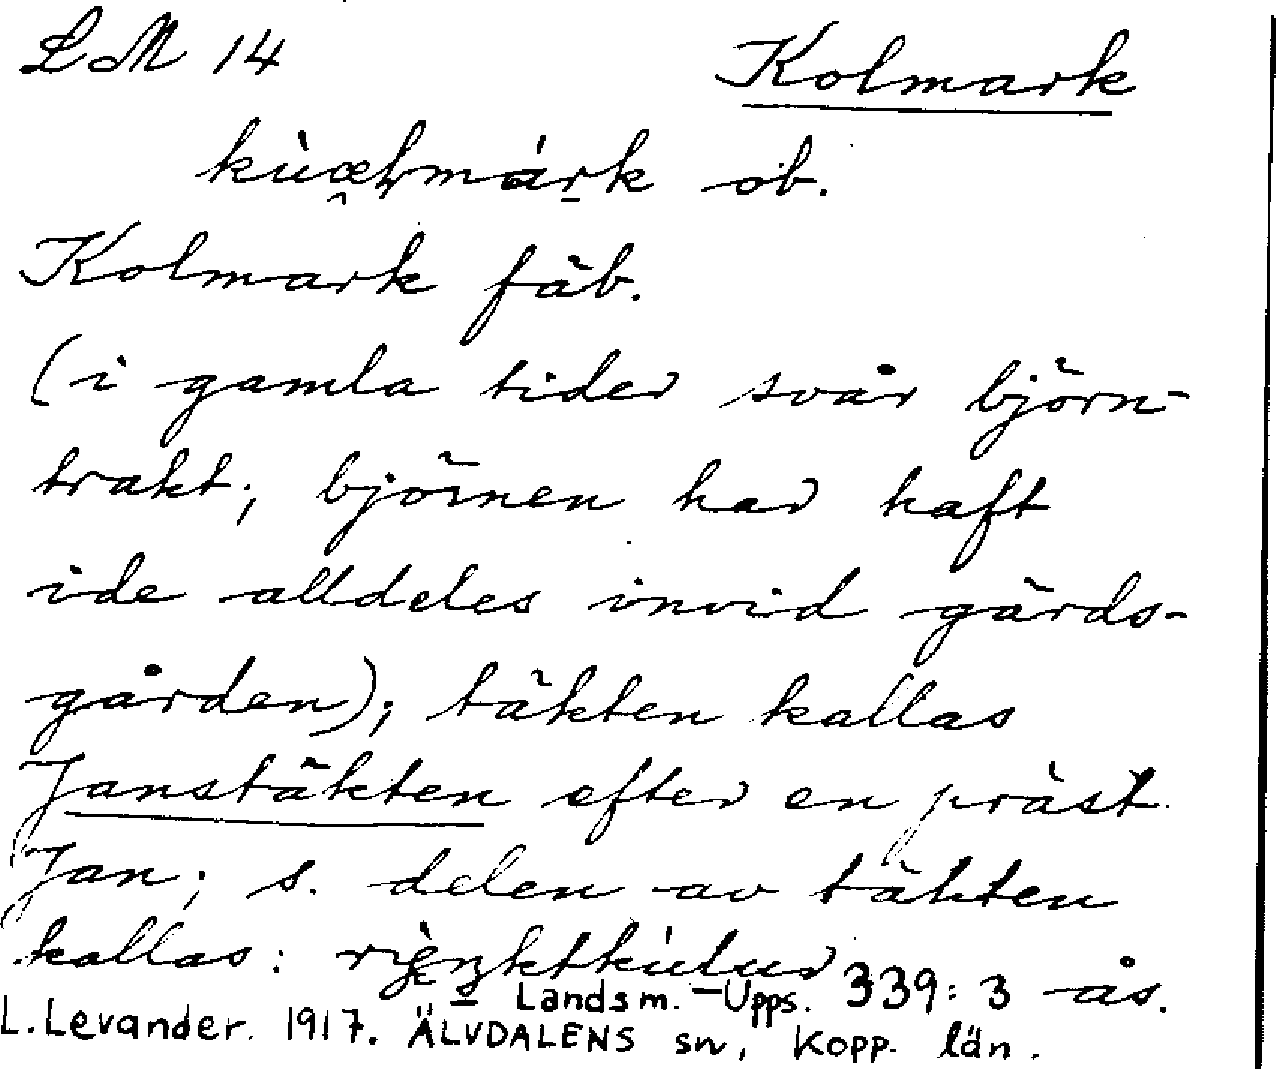 LM 14
Kolmark
kùæḷmárk ob.
Kolmark fäb.
(i gamla tider svår björn-
trakt; björnen har haft
ide alldeles invid gärds-
gården); täkten kallas
Janstäkten efter en präst
Jan; s. delen av täkten
kallas: ås.
Landsm.-Upps. 339:3
L. Levander. 1917. ÄLVDALENS sn, Kopp. län.